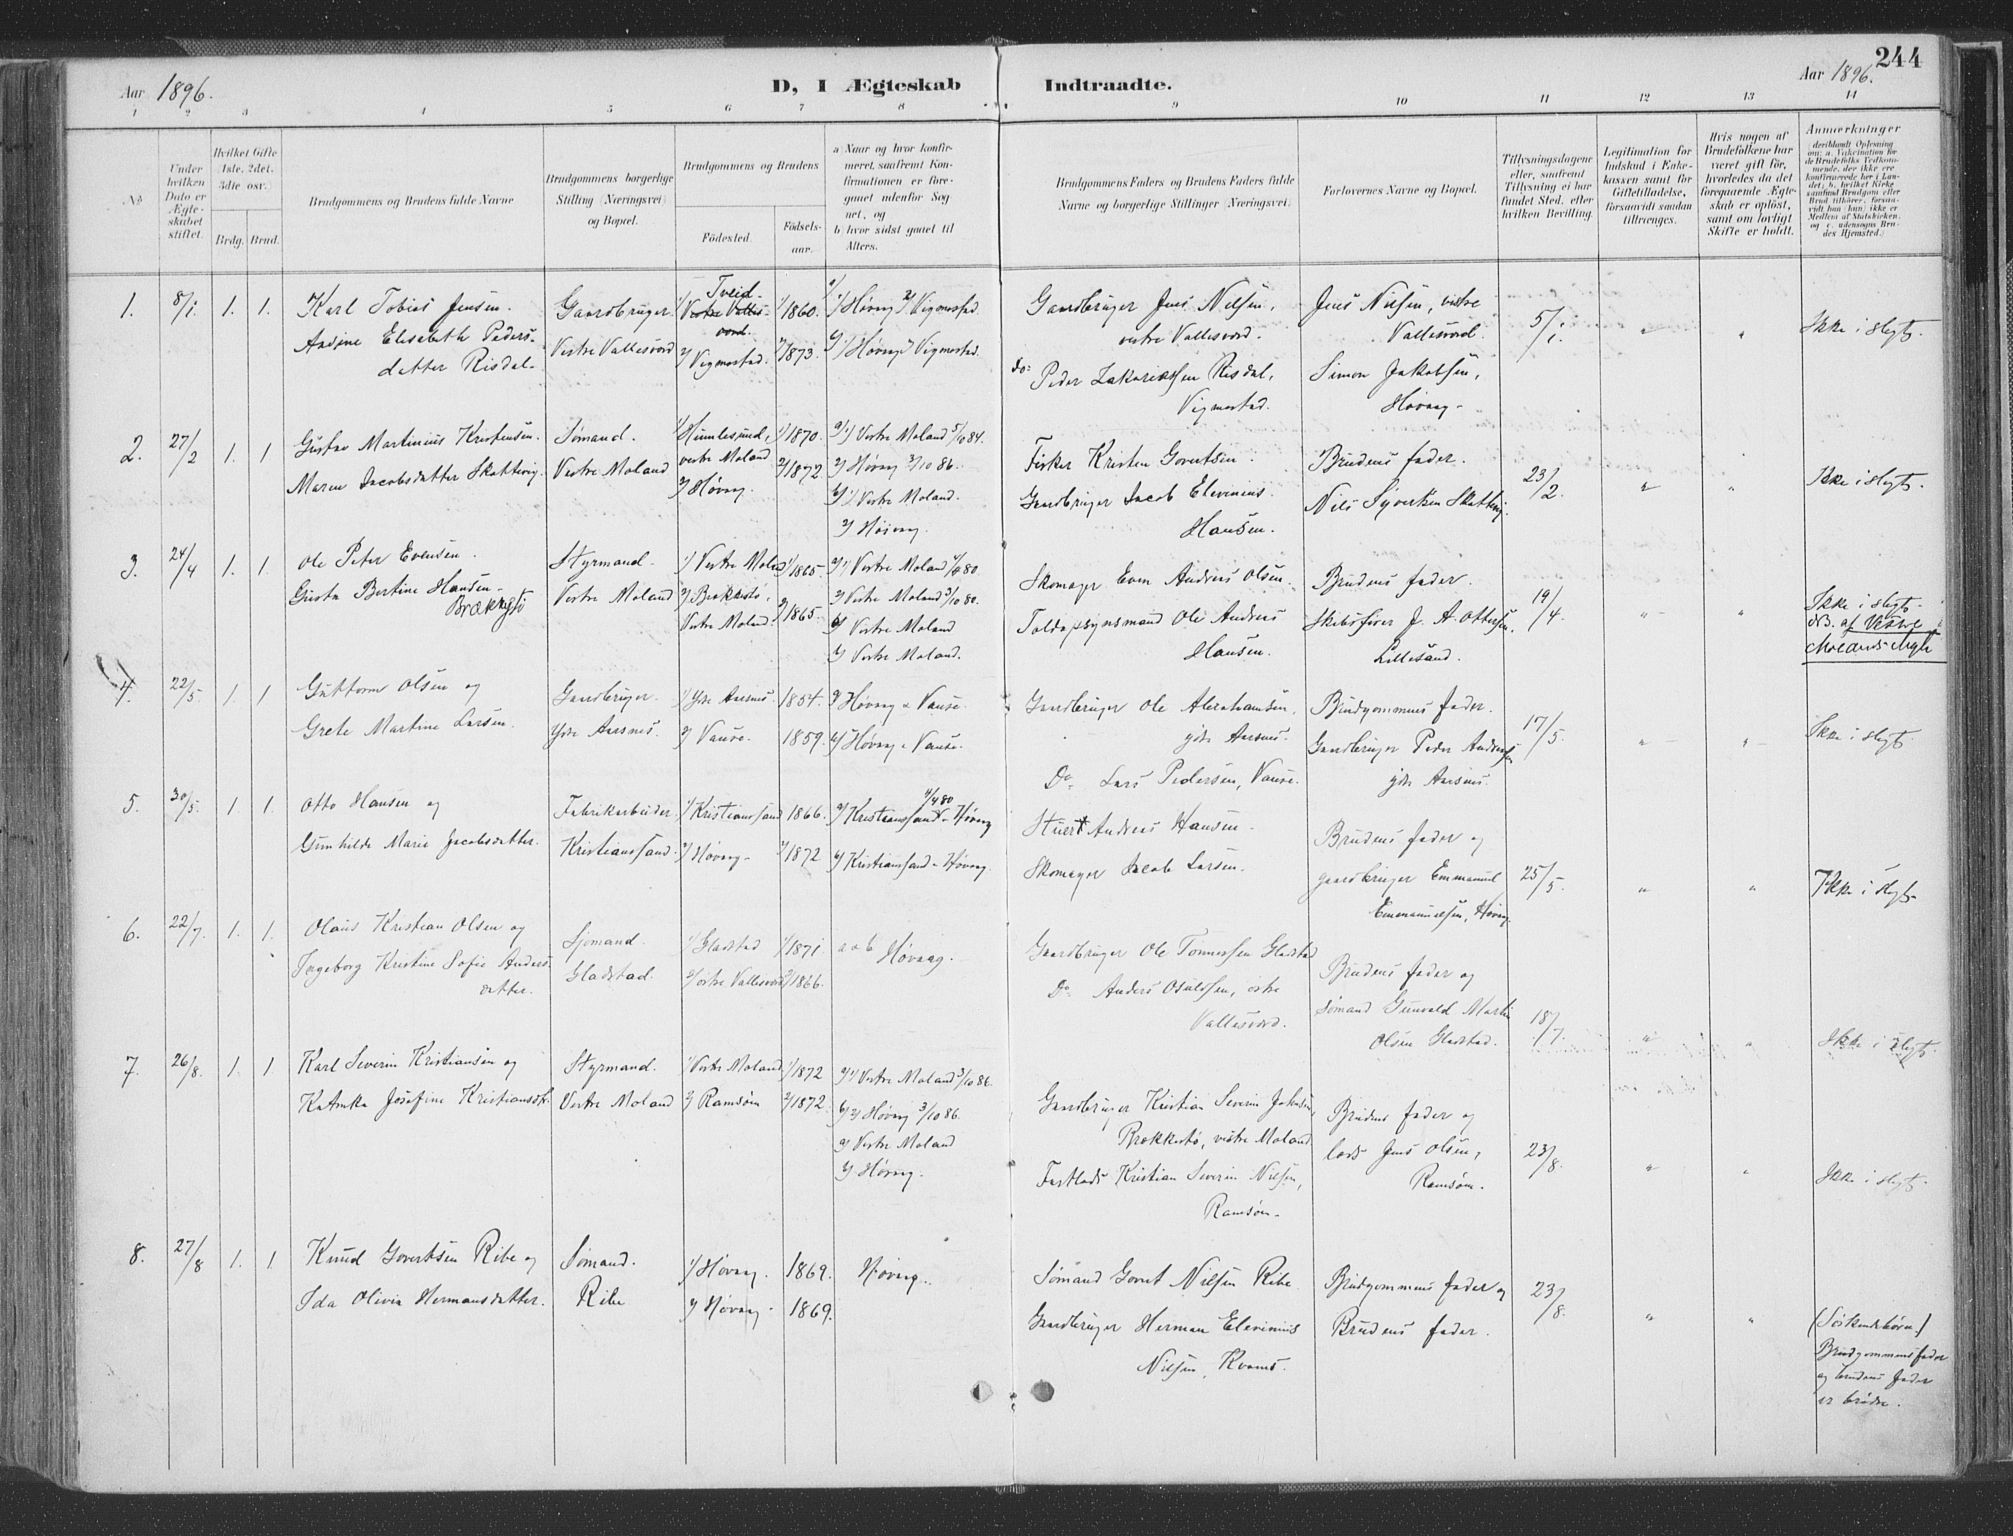 244
Aar 1896.
D, I Ægteskab Indtraadte.
Aar 1896.
1 2 3 4 5 6 7 8 9 10 11 12 13 14
No
Under hvilken Dato er Ægteskabet stiftet.
Hvilket Gifte 1ste, 2det, 3die osv.
Brdg. Brud.
Brudgommens og Brudens fulde Navne
Brudgommens borgerlige Stilling (Næringsvei) og Bopæl.
Brudgommens og Brudens
Fødested. Fødsels-aar.
a Naar og hvor konfirmeret, saafremt Konfirmationen er foregaaet udenfor Sognet, og
b hvor sidst gaaet til Alters.
Brudgommens Faders og Brudens Faders fulde Navne og borgerlige Stillinger (Næringsvei)
Forlovernes Navne og Bopæl.
Tillysningsdagene eller, saafremt Tillysning ei har fundet Sted, efter hvilken Bevilling.
Legitimation for Indskud i Enkekassen samt for Giftetilladelse, forsaavidt saadan tiltrænges.
Hvis nogen af Brudefolkene har været gift før, hvorledes da det foregaaende Ægteskab er opløst, samt om lovligt Skifte er holdt.
Anmærkninger
1. 8/1. 1. 1.
Karl Tobias Jensen.
Andine Elisabeth Pedersdatter Risdal.
Gaardbruger.
Vestre Vallesværd
1/ Tveid
2/ Vigmostad.
1/1860.
2/1873.
a/ 1/ Høvåg 2/ Vigmostad.
b/ 1/ Høvåg 2/ Vigmostad.
Gaardbruger Jens Nilsen, vestre Vallesværd.
Do: Peder Zakariassen Risdal, Vigmostad.
Jens Nilsen, vestre Vallesværd.
Simon Jakobsen, Høvaag.
5/1.
" "
Ikke i slegt.
2. 27/2 1. 1
Gustav Martinius Kristensen.
Maren Jacobsdatter Skottevig.
Sømand.
Vestre Moland
1/ Humlesund, vestre Moland
2/ Høvåg.
1/1870.
2/1872
a/ 1/ Vestre Moland 5/10 84.
2/ Høvåg 3/10 86.
b/ 1/ Vestre Moland.
2/ Høivåg.
Fisker Kristen Govertsen.
Gaardbruger Jacob Elevinius Hansen.
Brudens fader.
Nils Syvertsen Skottevig.
23/2.
" "
Ikke i slegt.
3. 24/4 1. 1
Ole Peter Evensen.
Gusta Bertine Hansen. Brækkestø
Styrmand.
Vestre Moland
1/ Vestre Moland
2/ Brækkestø, Vestre Moland.
1/1865.
2/1865.
a/ 1/ Vestre Moland 4/10 80
2/ Vestre Moland 3/10 80.
b/ 1/ Vestre Moland
2/ Vestre Moland.
Skomager Even Andreas Olsen.
Toldopsynsmand Ole Andreas Hansen.
Brudens fader.
Skibsfører J. A. Ottersen, Lillesand.
19/4.
" "
Ikke i slegt.
NB. af Vestre Molands Mgh
4. 22/5. 1. 1
Guttorm Olsen og
Grete Martine Larsen.
Gaardbruger.
Ydre Aarsnes.
1/ Ydre Aarsnes.
2/ Vanse.
1854.
1859.
a/ Høvåg & Vanse.
b/ Høvåg & Vanse.
Gaardbruger Ole Abrahamsen, ydre Aarsnes.
Do Lars Pedersen, Vanse.
Brudgommens fader.
Gaardbruger Peder Andersen ydre Aarsnes.
17/5.
" "
Ikke i slegt.
5. 30/5. 1. 1.
Otto Hansen og
Gunhilde Marie Jacobsdatter.
Fabrikarbeider
Kristianssand.
1/ Kristianssand
2/ Høvåg.
1866.
2/1872
a/ Kristianssand 4/4 80 - Høvåg
b/ Kristianssand - Høvåg.
Stuert Andreas Hansen.
Skomager Jacob Larsen.
Brudens fader og
gaardbruger Emmanuel Emmanuelsen, Høvåg.
25/5.
" "
Ikke i slegt.
6. 22/7. 1. 1.
Olaus Kristian Olsen og
Ingeborg Kristine Sofie Andersdatter.
Sjømand.
Gladstad.
1/ Gladstad
2/ østre Vallesværd
1/1871
2/1866.
a & b Høvaag.
Gaardbruger Ole Tønnessen Gladstad
Do Anders Osuldsen, østre Vallesværd.
Brudens fader og
Sømand Gunvald Martin Olsen Gladstad.
18/7.
" "
Ikke i slegt.
7. 26/8. 1. 1
Karl Severin Kristiansen og
Katinka Josefine Kristiansdt.
Styrmand.
Vestre Moland
1/ Vestre Moland
2/ Ramsøen
1/1872
2/1872.
a/ 1/ Vestre Moland 3/10 86.
2/ Høvåg 3/10 86.
Vestre Moland
2/ Høvåg.
Gaardbruger Kristian Severin Jakobsen Brækkestø, vestre Moland
Fastlods Kristian Severin Nilsen, Ramsøen.
Brudens fader og
lods Jens Olsen, Ramsøen.
23/8.
" "
Ikke i slegt.
8. 27/8 1. 1
Knud Govertsen Ribe og
Ida Olivia Hermansdatter.
Sømand.
Ribe
1/ Høvåg.
2/ Høvåg.
1869.
1869.
Høvåg.
Sømand Govert Nilsen Ribe
Gaardbruger Herman Elevinius Nilsen, Kvanes.
Brudgommens fader og
Brudens fader.
23/8.
" "
(Søskendebørn)
Brudgommens fader og brudens fader er brødre.